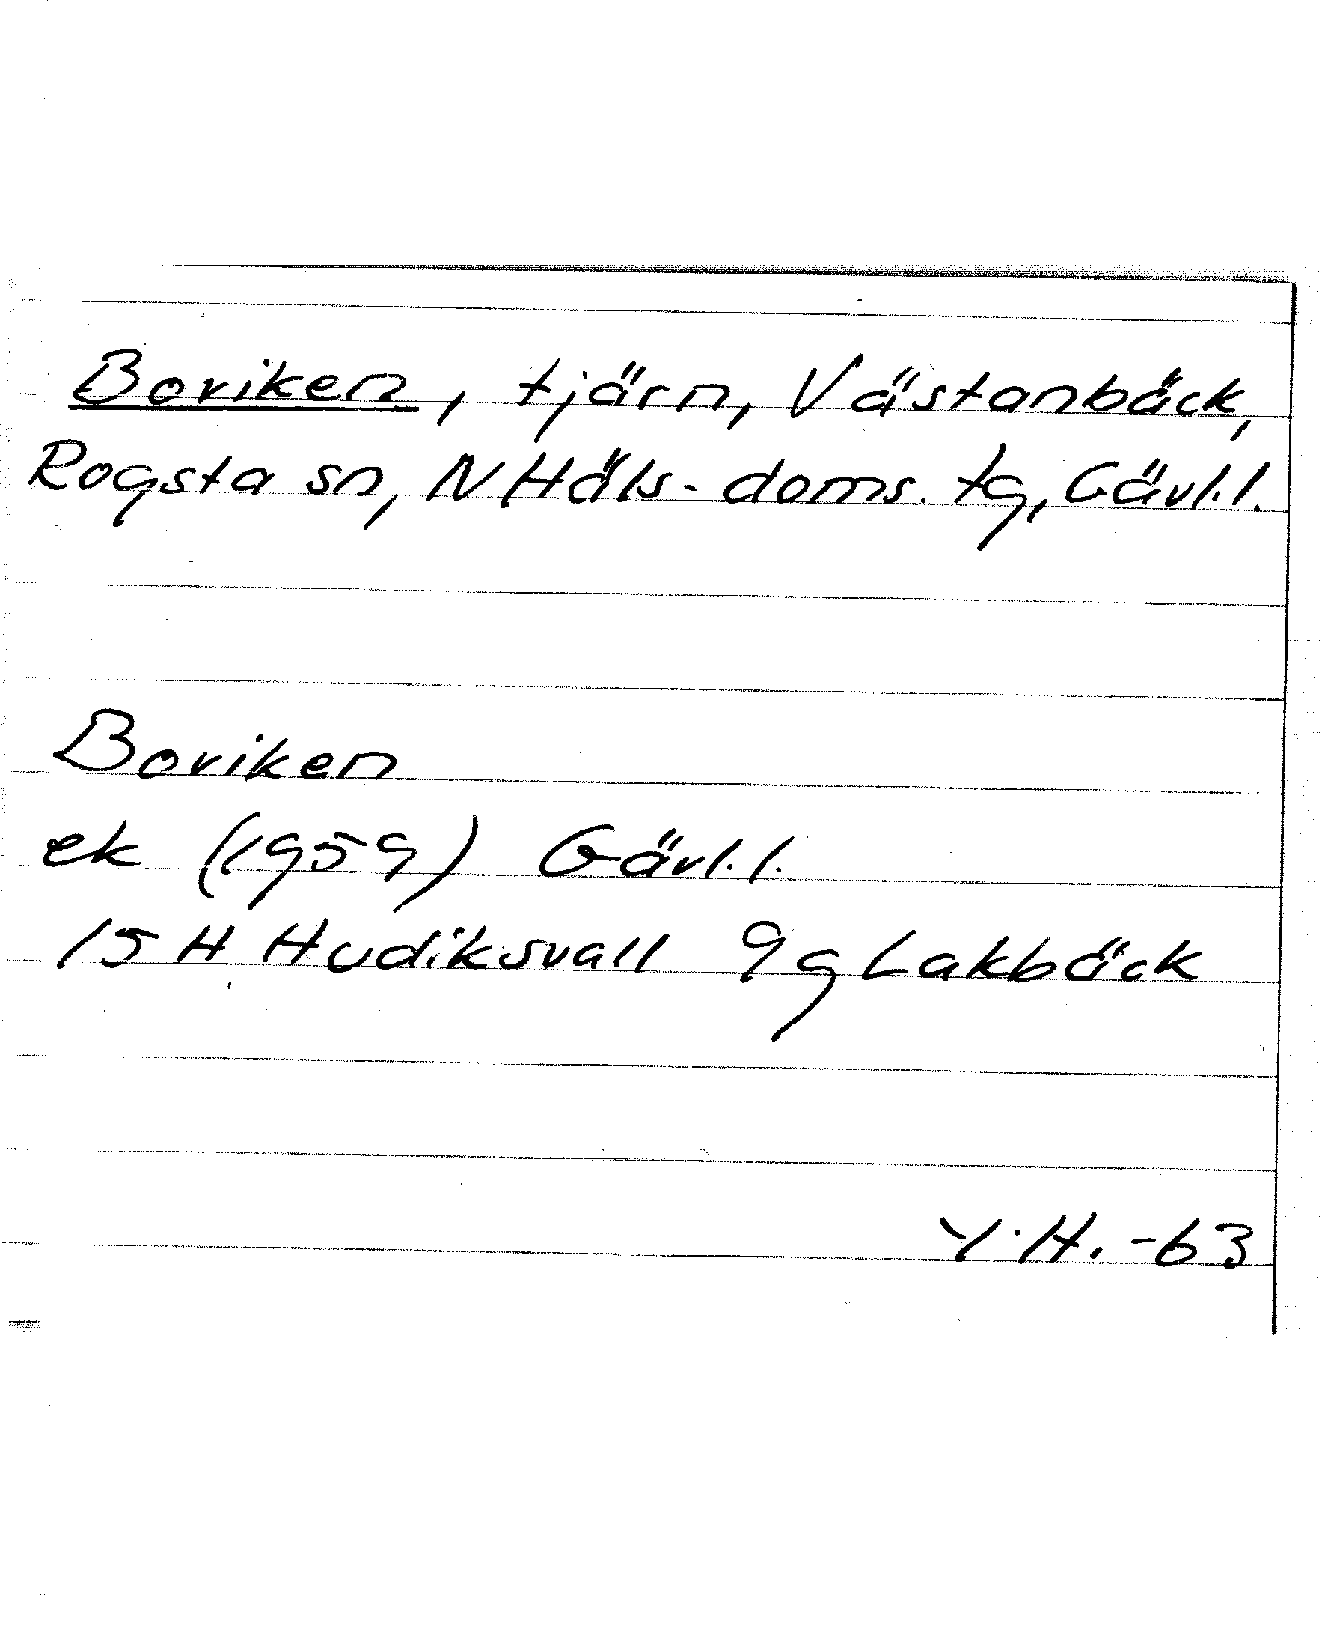 Boviken, tjärn, Västanbäck,
Rogsta sn, N Häls. doms. tg, Gävl.l.
Boviken
ek (1959) Gävl.l.
15 H Hudiksvall 9g Lakbäck
Y.H. -63